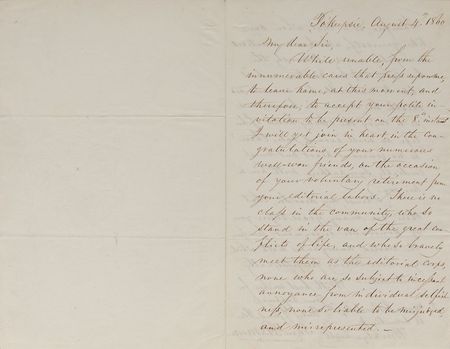 Pokeepsie, August 4th 1860
My dear Sir,
While unable, from the
innumerable cares that press upon me,
to leave home, at this moment, and
therefore, to accept your polite in-
vitation to be present on the 8th instant
I will yet join in heart, in the con-
gratulations, of your numerous
well-won friends, on the occasion
of your voluntary retirement from
your editorial labors. There is no
class in the community, who so
stand in the van of the great con-
flicts of life, and who so bravely
meet them as the editorial corps,
none who are so subject to incessant
annoyance from individual selfish
ness, none so liable to be misjudged
and misrepresented.—